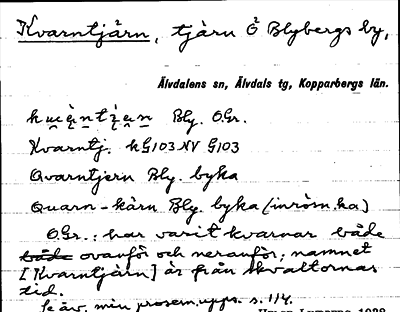 Kvarntjärn, tjärn Ö Blybergs by,
Älvdalens sn, Älvdals tg, Kopparbergs län.
Bly. O.Gr.
Kvarntj. kG103 NV G103
Qvarntjern Bly. byka
Quarn-kärn Bly. byka (inröm.ka)
O.Gr.: har varit kvarnar både
både ovanför och neranför; namnet
[Kvarntjärn] är från skvaltornas
tid.
Se äv. min prosem.upps. s. 114.